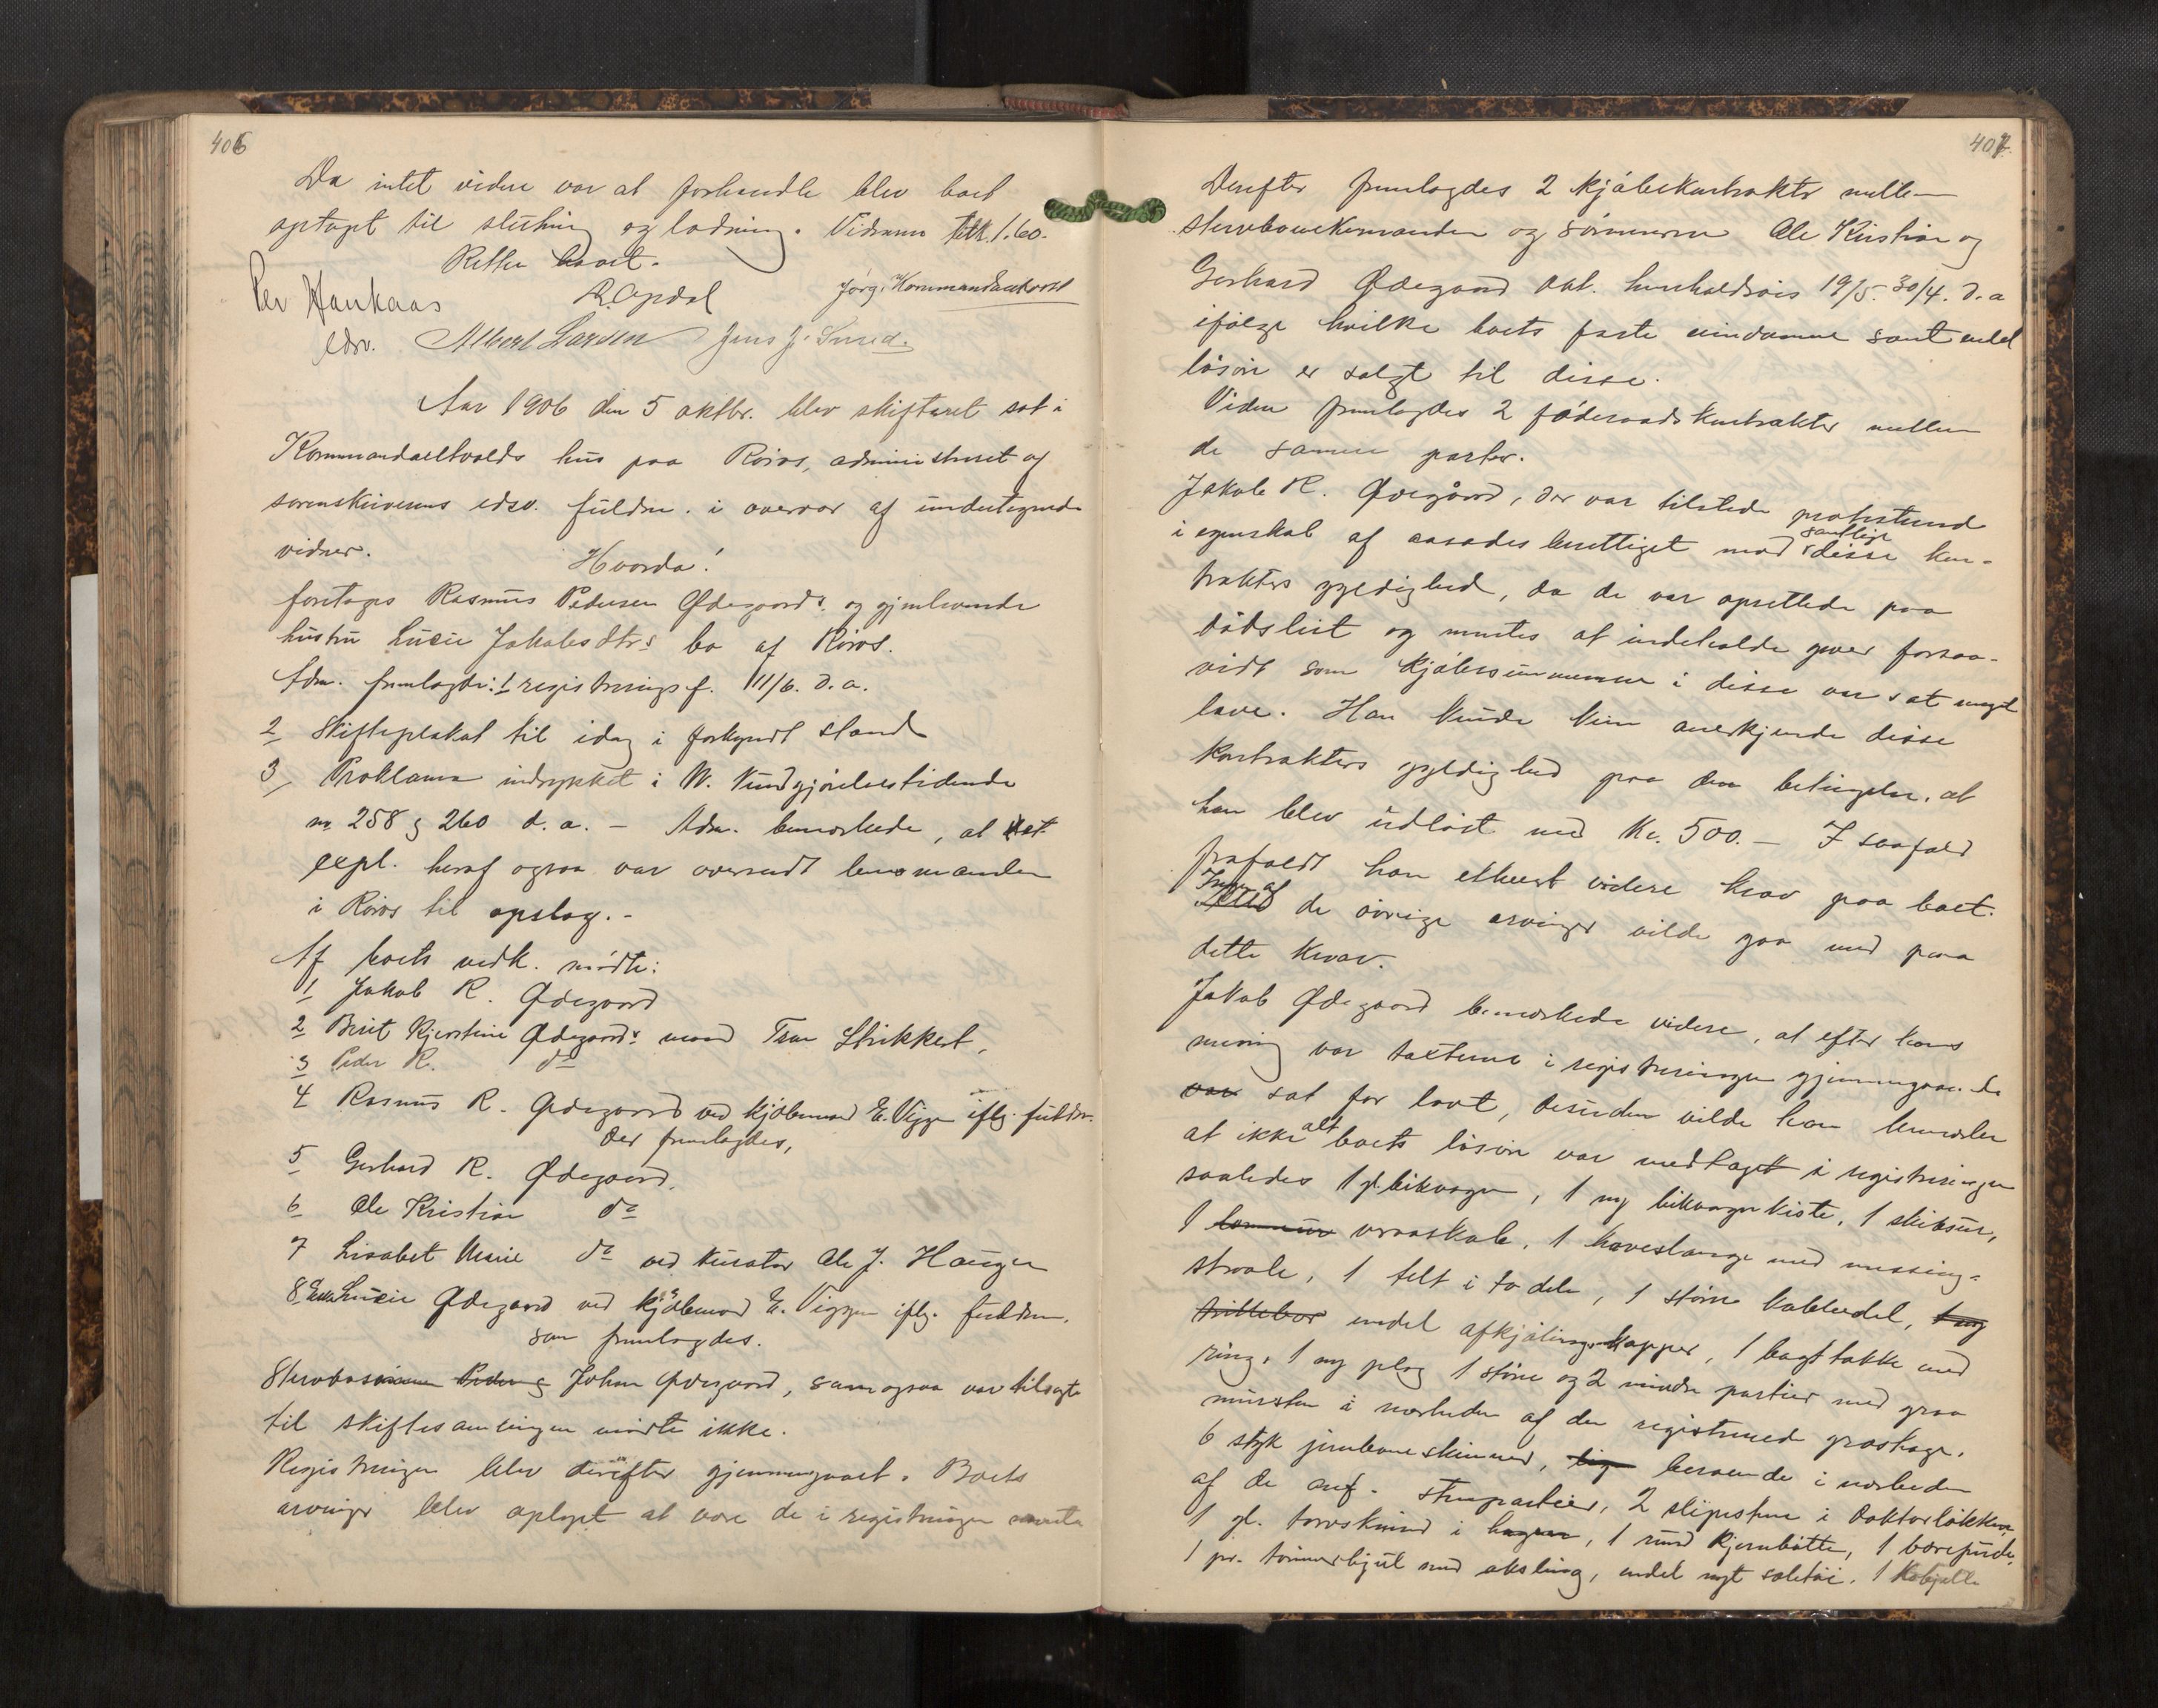 406
Da intet videre var at forhandle blev boet
optaget til slutning og lodning. Vidnerne tilk. 1.60.
Retten hævet.
Per Haukaas
R. Opdal
Jørg. Kommandantvold
edsv.
Albert Larsen
Jens J.
Aar 1906 den 5 oktbr. blev skifteret sat i
Kommandantvolds hus paa Røros, administreret af
sorenskriverens edsv. fuldm. i overvær af undertegnede
vidner.
Hvorda!
foretoges Rasmus Pedersen Ødegaards og gjenlevende
hustru Lucie Jakobsdtrs bo af Røros.
Adm. fremlagde: 1 registreringsf. 11/6. d. a.
2 Skifteplakat til idag i forkyndt stand
3 Proklama indrykket i N. Kundgjørelsestidende
nr. 258 & 260 d. a. – Adm. bemærkede, at et
expl. heraf ogsaa var oversendt lensmanden
i Røros til opslag. –
Af boets vedk. mødte:
1 Jakob R. Ødegaard
2 Berit Kjerstine Ødegaards mand Tron Strikkert,
3 Peder R. do
4 Rasmus R. Ødegaard ved kjøbmand E. Viggen iflg. fuldm.
der fremlagdes,
5 Gerhard R. Ødegaard,
6 Ole Kristian do
7 Lisabet Marie do ved kurator Ole J. Haugen
8 Enke Lucie Ødegaard ved kjøbmand E. Viggen iflg. fuldm.
som fremlagdes.
Stervbo Peder & Johan Ødegaard, som ogsaa var tilsagte
til skiftesamlingen mødte ikke.
Registreringen blev derefter gjennemgaaet. Boets
arvinger blev oplyst at være de i registreringen nævnte
407
Derefter fremlagdes 2 kjøbekontrakter mellem
stervboenkemanden og sønnerne Ole Kristian og
Gerhard Ødegaard dat. henholdsvis 19/5. 30/4. d. a
ifølge hvilke boets faste eiendomme samt endel
løsøre er solgt til disse.
Videre fremlagdes 2 føderaadskontrakter mellem
de samme parter.
Jakob R. Ødegård, der var tilstede protesterede
samtlige
i egenskab af aasædesberettiget mod disse kon-
trakters gyldighed, da de var oprettede paa
dødsleiet og mentes at indeholde gaver forsaa-
vidt som kjøbesummerne i disse var sat meget
lave. Han kunde kun anerkjende disse
kontrakters gyldighed paa den betingelse, at
han blev udløst med Kr. 500. – I saafald
frafaldt han ethvert videre krav paa boet.
Ingen af
de øvrige arvinger vilde gaa med paa
dette krav.
Jakob Ødegaard bemærkede videre, at efter hans
mening var taxterne i registreringen gjennemgaaende
var sat for lavt, desuden vilde han bemærke
alt
at ikke boets løsøre var medtaget i registreringen
saaledes 1 gl. bikvogn, 1 ny bikvognkiste, 1 skibsur,
1 vraaskab, 1 haveslange med messing-
straale, 1 telt i to dele, 1 større kobberkedel,
trillebør endel afkjølingskopper, 1 bagttakke med
ring, 1 ny plog 1 større og 2 mindre partier med graa
mursten i nærheden af den registrerede graahage.
6 styk jernbaneskinner, beroende i nærheden
af de anf. stenpartier, 2 slipestene i Doktorløkken,
1 gl. torvskuud i hagen, 1 rund kjernbøtte, 1
1 pr. tømmerhjul med aksling, endel nyt seletøi, 1 kobjelle